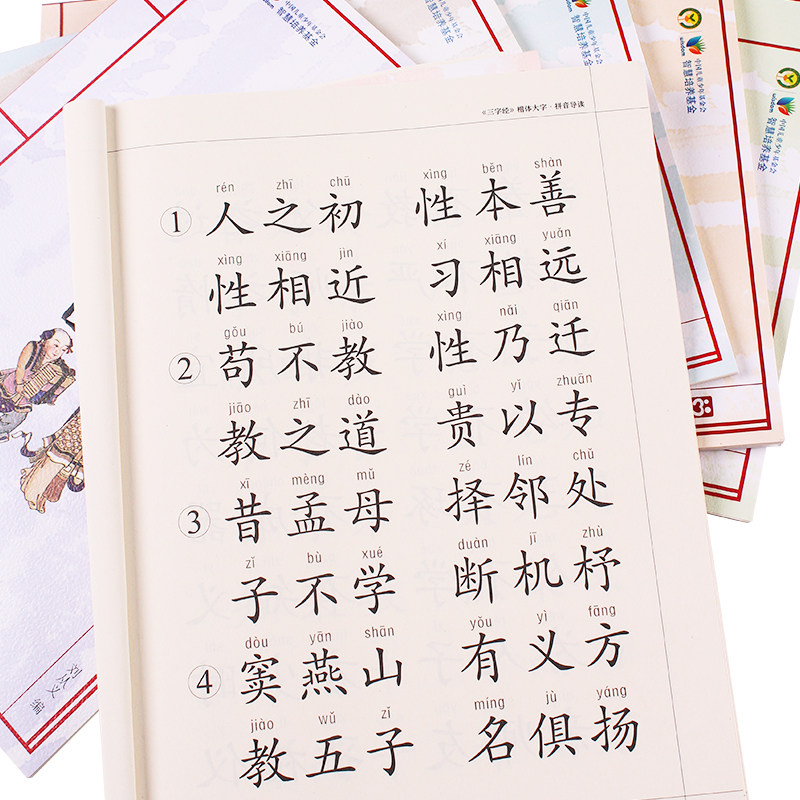 《三字经》楷体大字·拼音导读
rén zhī chū xìng běn shàn
① 人之初 性本善
xìng xiāng jìn xí xiāng yuǎn
性相近 习相远
gǒu bú jiào xìng nǎi qiān
② 苟不教 性乃迁
jiāo zhī dào guì yǐ zhuān
教之道 贵以专
xī mèng mǔ zé lín chǔ
③ 昔孟母 择邻处
zǐ bù xué duàn jī zhù
子不学 断机杼
dòu yān shān yǒu yì fāng
④ 窦燕山 有义方
jiào wǔ zǐ míng jù yáng
教五子 名俱扬
中国儿童少年基金会
智慧培养基金
wisdom
中国儿童少年基金会
智慧培养基金
wisdom
中国儿童少年基金会
智慧培养基金
编